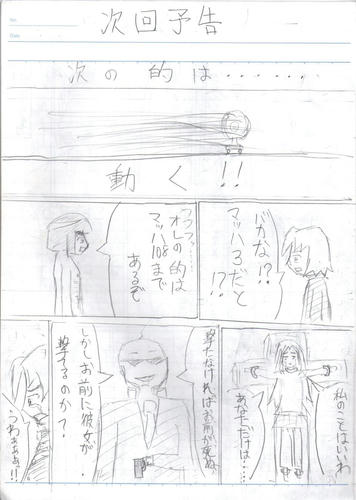 次回予告
次の的は・・・・・・・
動く!!
バカな!?
マッハ3だと
!?
フフフッ…
オレの的は
マッハ108まで
あるぞ
私のことはいいわ
あなただけは……
撃たなければお前が死ぬ。
しかしお前に彼女が
撃てるのか?
うわぁぁぁ!!